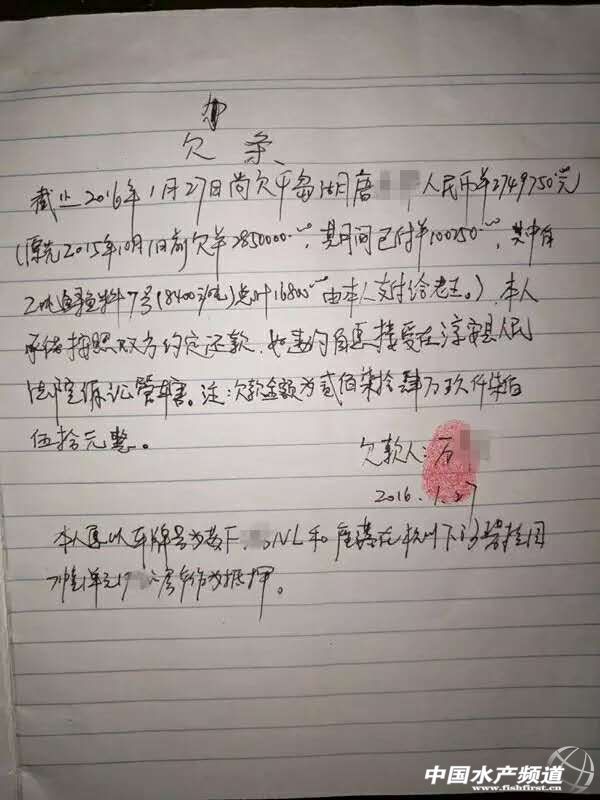 欠条
截止2016年1月27日尚欠千岛湖唐 人民币¥2749750元
(原先2015年10月1日前欠¥2850000.00, 其间已付¥100250.00, 其中有
2吨 料7号(8400元/吨)总计16800.00由本人支付给老王。) 本人
承诺按照双方约定还款, 如违约自愿接受在淳安县人民
法院诉讼管辖。注:欠款金额为贰佰柒拾肆万玖仟柒佰
伍拾元整。
欠款人:方
2016.1.27
本人愿以车牌号为 F NL和座落在杭州下沙
单元 作为抵押。
中国水产频道
www.fishfirst.cn